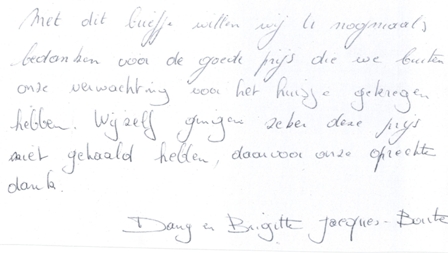 Met dit briefje willen wij U nogmaals
bedanken voor de goede prijs die we buiten
onze verwachting voor het huisje gekregen
hebben. Wij zelf gingen zeker deze prijs
niet gehaald hebben, daarvoor onze oprechte
dank.
Dany en Brigitte Jacques - Bonte